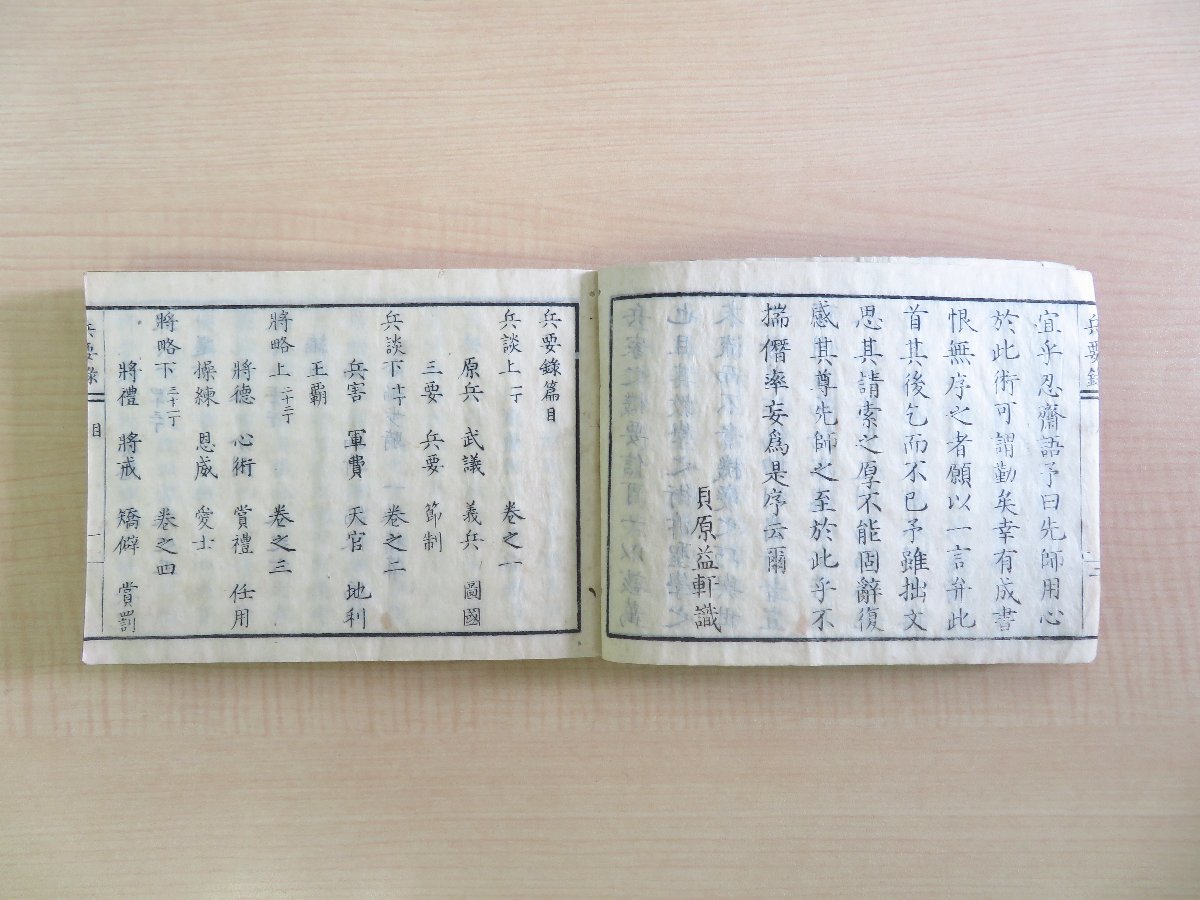 兵要錄
宜乎忍齋語予曰先師用心
於此術可謂勤矣幸有成書
恨無序之者願以一言弁此
首其後乞而不已予雖拙文
思其請索之厚不能固辭復
感其尊先師之至於此乎不
揣僭率妄爲是序云爾
貝原益軒識
兵要錄篇目
兵談上 一丁 卷之一
原兵 武議 義兵 圖國
三要 兵要 節制
兵談下 十丁 卷之二
兵害 軍費 天官 地利
王霸
將略上 二十二丁 卷之三
將德 心術 賞禮 任用
操練 恩威 愛士
將略下 三十二丁 卷之四
將禮 將戒 矯僻 賞罰
兵要錄 目 一